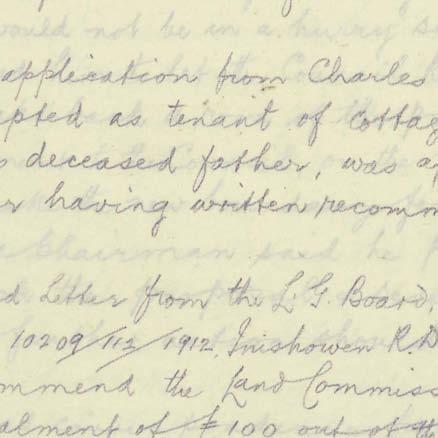 would not be in a hurry
application from Charles
epted as tenant of Cottag
s deceased father, was ap
r having written, recomm
Chairman said he
d Letter from the L. G. Board,
10209/112/1912, Inishowen R. D.
ommend the Land Commiss
alment of £100 out of the